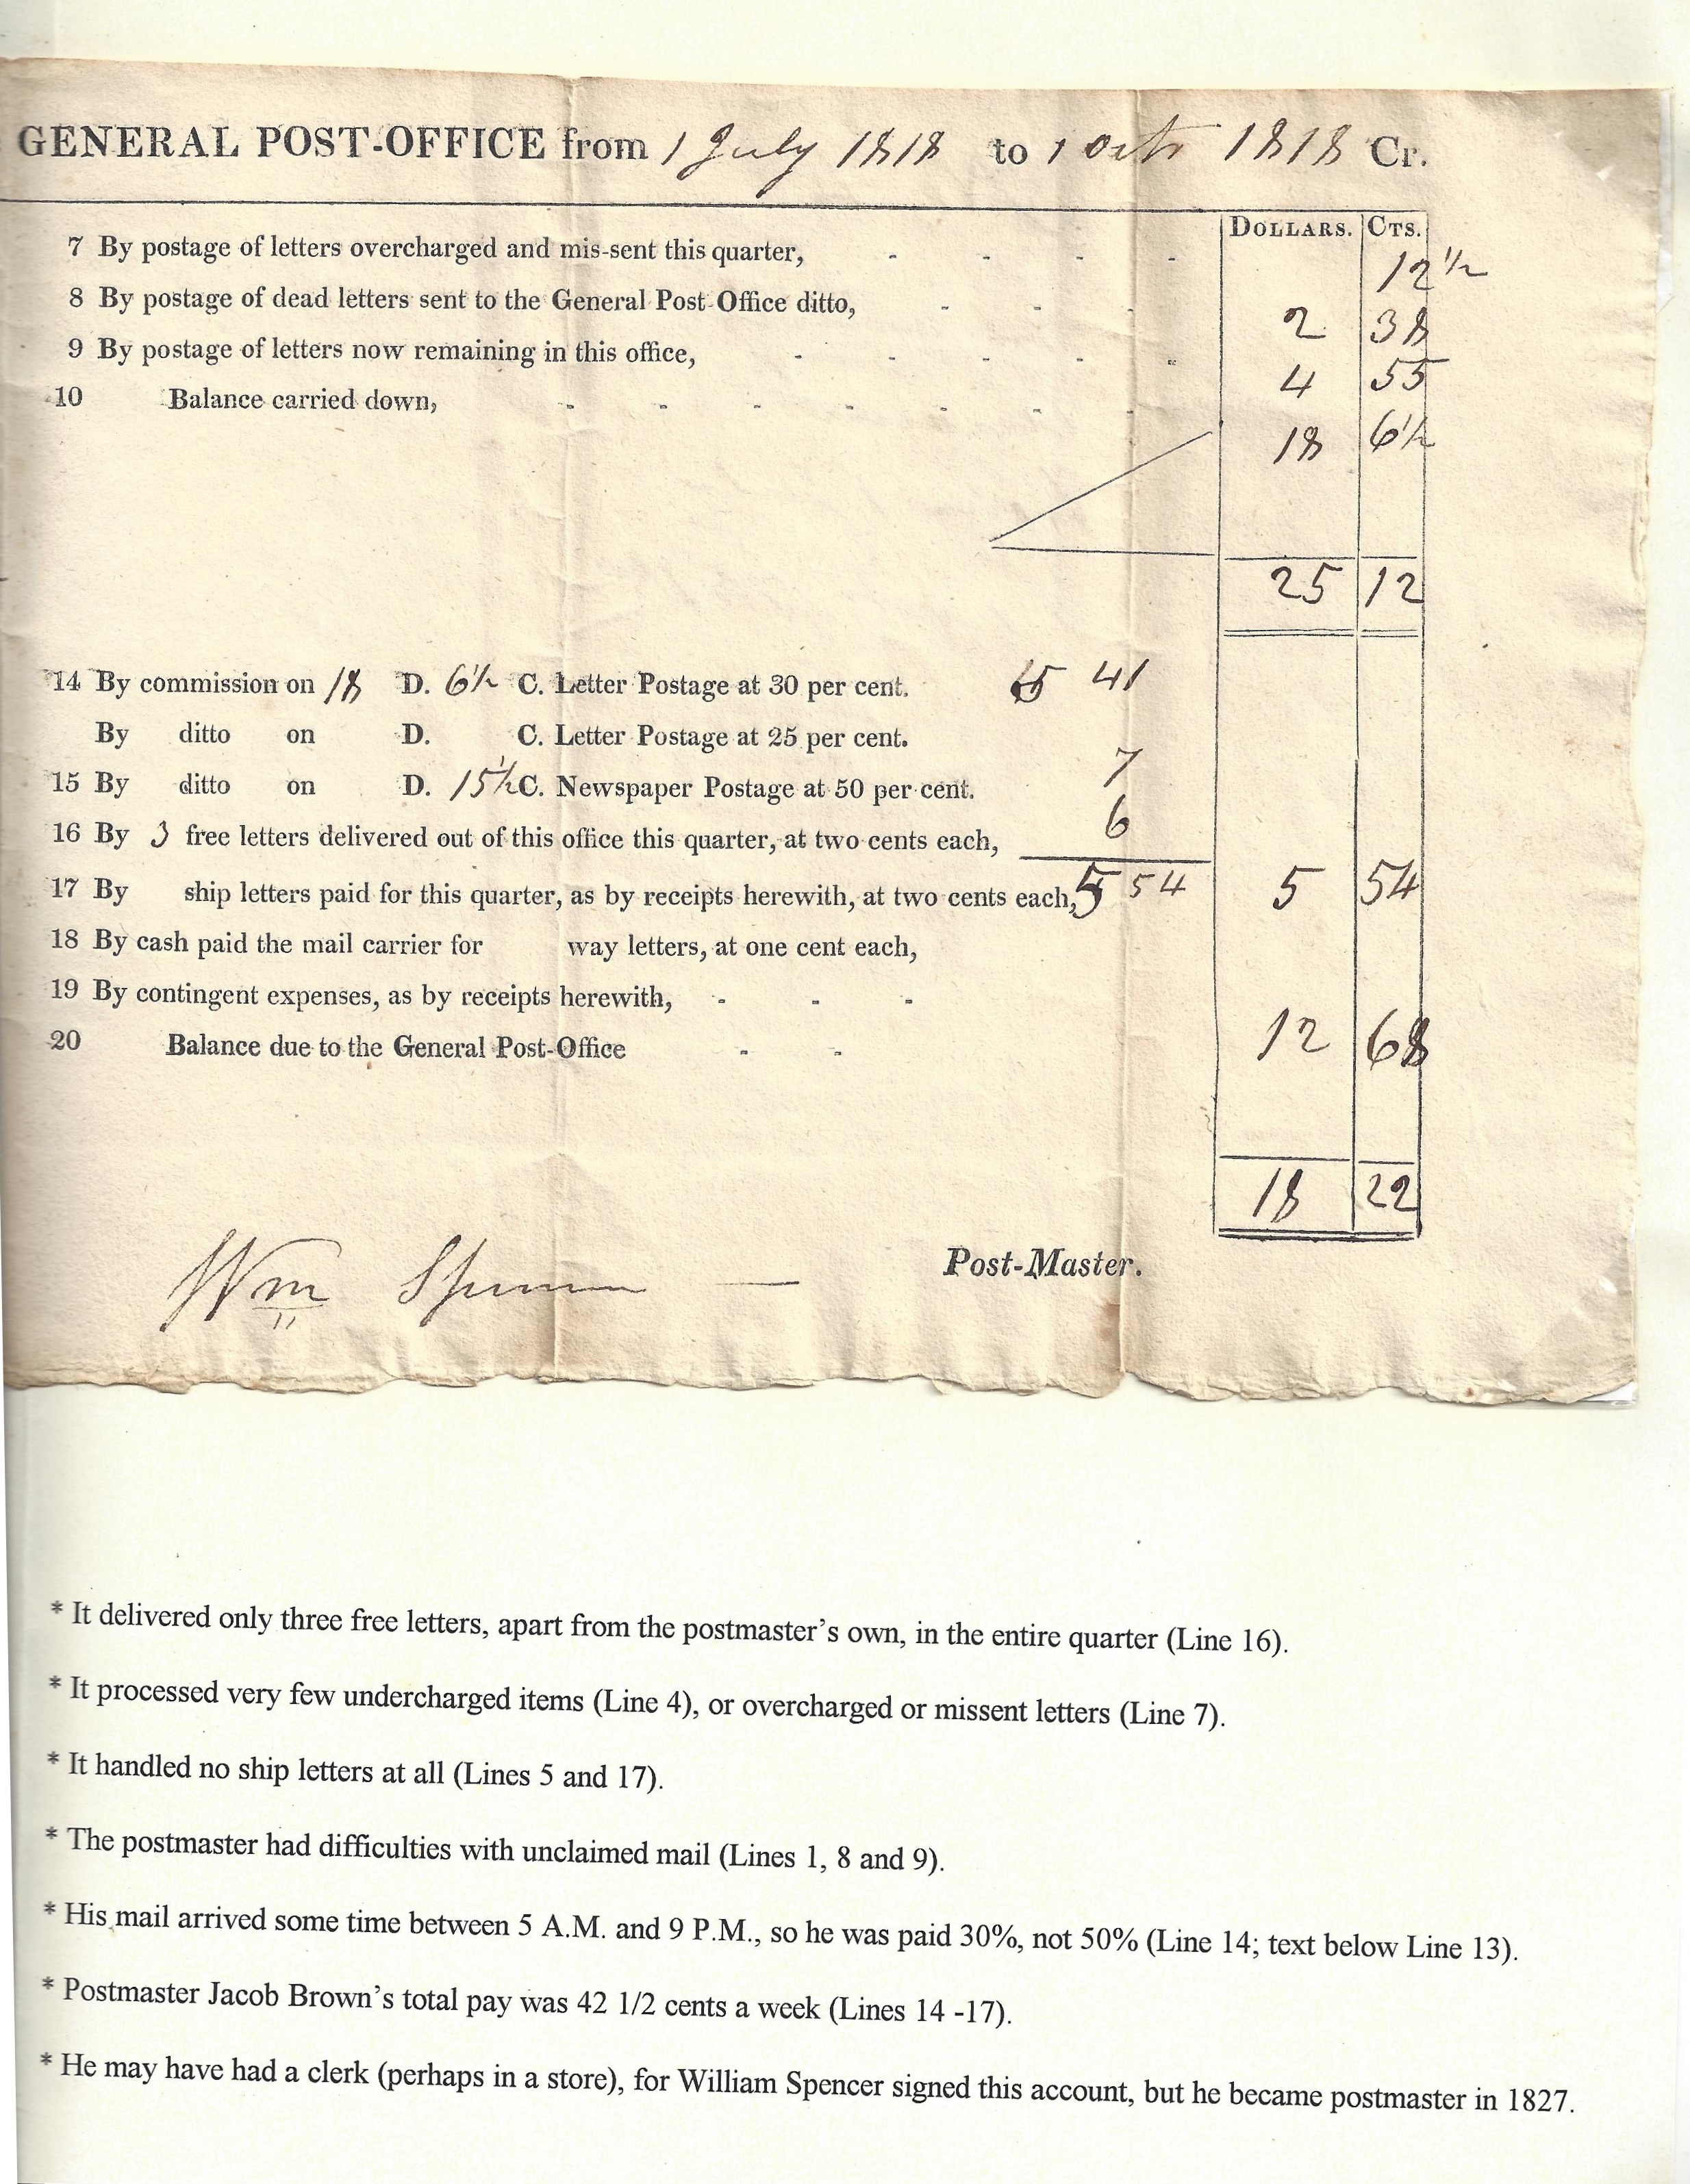 GENERAL POST-OFFICE from 1 July 1818 to 1 Octr 1818 Cr.
DOLLARS. CTS.
7 By postage of letters overcharged and mis-sent this quarter, - - - - 12 1/2
8 By postage of dead letters sent to the General Post-Office ditto, - - - 2 38
9 By postage of letters now remaining in this office, - - - - - 4 55
10 Balance carried down, - - - - - - - 18 6 1/2
25 12
14 By commission on 18 D. 6 1/2 C. Letter Postage at 30 per cent. 5 41
By ditto on D. C. Letter Postage at 25 per cent.
15 By ditto on D. 15 1/2 C. Newspaper Postage at 50 per cent. 7
16 By 3 free letters delivered out of this office this quarter, at two cents each, 6
17 By ship letters paid for this quarter, as by receipts herewith, at two cents each, 5 54 5 54
18 By cash paid the mail carrier for way letters, at one cent each,
19 By contingent expenses, as by receipts herewith, - - -
20 Balance due to the General Post-Office - - 12 68
18 22
Wm Spencer — Post-Master.
* It delivered only three free letters, apart from the postmaster's own, in the entire quarter (Line 16).
* It processed very few undercharged items (Line 4), or overcharged or missent letters (Line 7).
* It handled no ship letters at all (Lines 5 and 17).
* The postmaster had difficulties with unclaimed mail (Lines 1, 8 and 9).
* His mail arrived some time between 5 A.M. and 9 P.M., so he was paid 30%, not 50% (Line 14; text below Line 13).
* Postmaster Jacob Brown's total pay was 42 1/2 cents a week (Lines 14 -17).
* He may have had a clerk (perhaps in a store), for William Spencer signed this account, but he became postmaster in 1827.